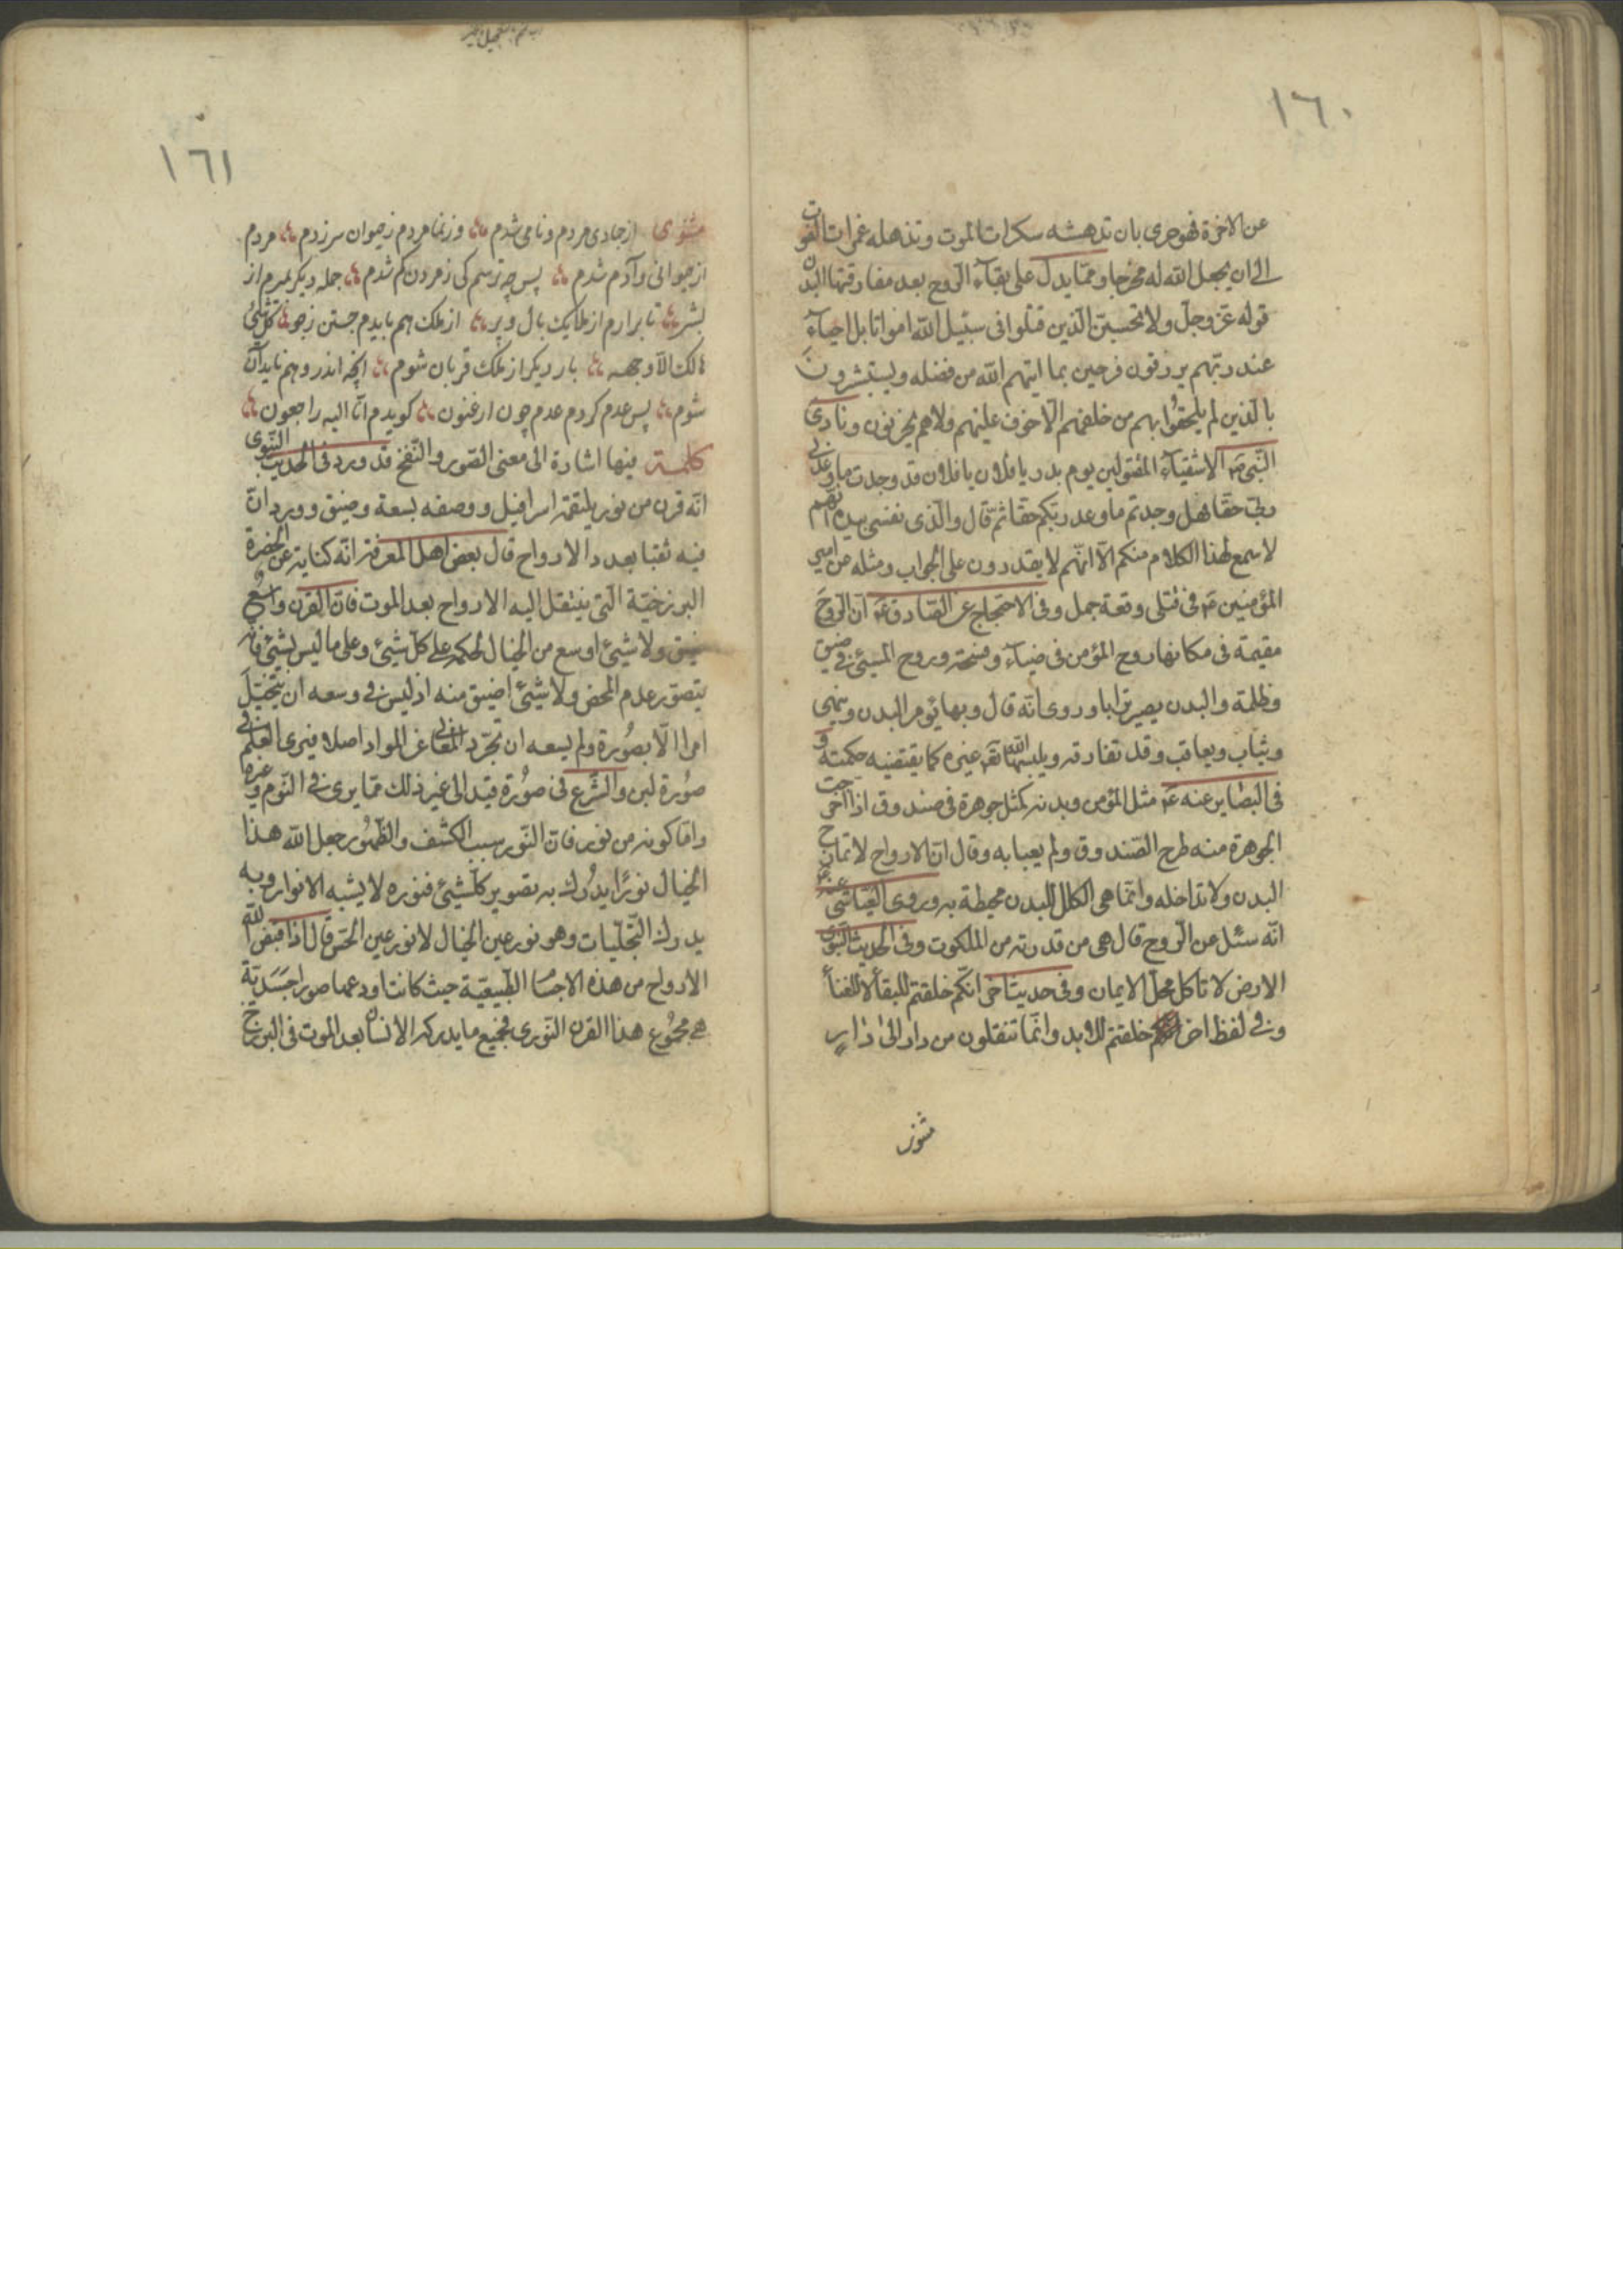 ١٦٠
عن الاخرة فهو حرى بان تدهشه سكرات الموت وتذهله غمرات الفوت
الى ان يجعل الله له مخرجا ومما يدل على بقاء الروح بعد مفارقتها البدن
قوله عز وجل ولا تحسبن الذين قتلوا فى سبيل الله امواتا بل احياء
عند ربهم يرزقون فرحين بما اتيهم الله من فضله ويستبشرون
بالذين لم يلحقوا بهم من خلفهم الا خوف عليهم ولا هم يحزنون ونادى
النبى ص الاشقياء المقتولين يوم بدر يا فلان يا فلان قد وجدت ما وعدنى
ربى حقا فهل وجدتم ما وعد ربكم حقا ثم قال والذى نفسى بيده انهم
لاسمع لهذا الكلام منكم الا انهم لا يقدرون على الجواب ومثله عن امير
المؤمنين ع فى قتلى وقعة جمل وفى الاحتجاج عن الصادق ع ان الروح
مقيمة فى مكانها روح المؤمن فى ضياء وفسحة وروح المسيئ فى ضيق
وظلمة والبدن يصير ترابا وروى انه قال وبها يؤمر البدن وينهى
ويثاب ويعاقب وقد تفارقه ويلبسها الله تع غيره كما يقتضيه حكمته و
فى البصاير عنه ع مثل المؤمن وبدنه كمثل جوهرة فى صندوق اذا اخرجت
الجوهرة منه طرح الصندوق ولم يعبا به وقال ان الارواح لا تمازج
البدن ولا تداخله وانما هى الكلل للبدن محيطة به وروى العياشى عنه ع
انه سئل عن الروح قال هى من قدرته من الملكوت وفى الحديث النبوى
الارض لا تاكل محل الايمان وفى حديث اخر انكم خلقتم للبقاء لا للفناء
وفى لفظ اخر خلقتم للابد وانما تنقلون من دار الى دار
مثنوى
١٦١
مثنوى از جمادى مردم و نامى شدم وز نما مردم ز حيوان سر زدم مردم
از حيوانى و آدم شدم پس چه ترسم كى ز مردن كم شدم جمله ديكر بميرم از
بشر تا برارم از ملايك بال و پر از ملك هم بايدم جستن ز جو كل شيئ
هالك الا وجهه بار ديكر از ملك قربان شوم انچه اندر وهم نايد آن
شوم پس عدم كردم عدم چون ارغنون كويدم انا اليه راجعون
كلمة فيها اشارة الى معنى الصور والنفخ قد ورد فى الحديث النبوى
انه قرن من نور يلتقمه اسرافيل ووصفه بسعة وضيق وورد ان
فيه ثقبا بعدد الارواح قال بعض اهل المعرفة انه كناية عن الحضرة
البرزخية التى ينتقل اليه الارواح بعد الموت فان القرن واسع و
ضيق ولا شيئ اوسع من الخيال لحكمه على كل شيئ وعلى ما ليس بشيئ فانه
يتصور عدم المحض ولا شيئ اضيق منه اذ ليس فى وسعه ان يتخيل
امرا الا بصورة ولم يسعه ان تجرد المعانى عن المواد اصلا فيرى العلم فى
صورة لبن والشرع فى صورة قيد الى غير ذلك مما يرى فى النوم وغيره
واما كونه من نور فان النور سبب الكشف والظهور جعل الله هذا
الخيال نورا يدرك به تصوير كل شيئ فنوره لا يشبه الانوار وبه
يدرك التجليات وهو نور عين الخيال لا نور عين الحس قال اذا قبض الله
الارواح من هذه الاجسام الطبيعية حيث كانت اودعها صورا جسدية
فى مجموع هذا القرن النورى فجميع ما يدركه الانسان بعد الموت فى البرزخ